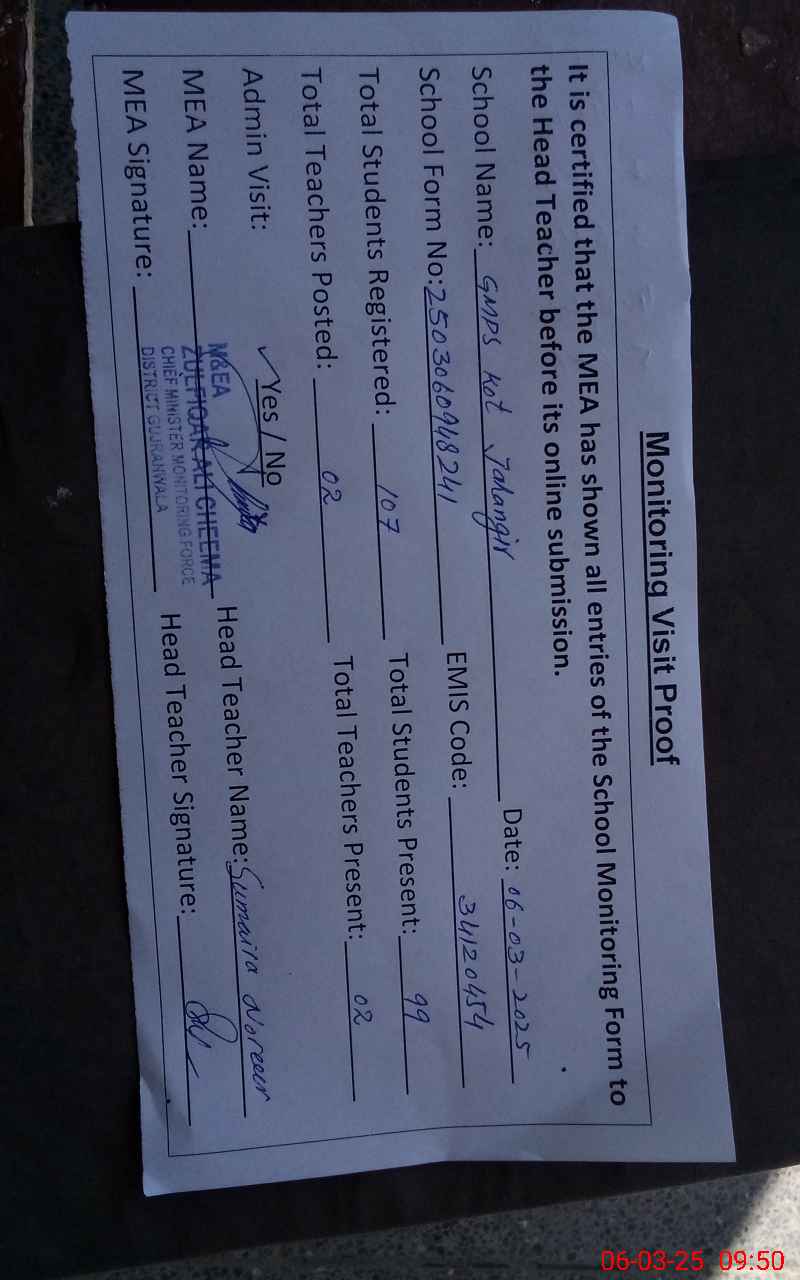 Monitoring Visit Proof
It is certified that the MEA has shown all entries of the School Monitoring Form to
the Head Teacher before its online submission.
School Name: GMPS Kot Jalangir Date: 06-03-2025
School Form No: 2503060948241 EMIS Code: 34120454
Total Students Registered: 107 Total Students Present: 99
Total Teachers Posted: 02 Total Teachers Present: 02
Admin Visit: ✓Yes / No
MEA Name: Head Teacher Name: Sumaira Noreen
MEA Signature: Head Teacher Signature:
M&EA
ZULFIQAR ALI CHEEMA
CHIEF MINISTER MONITORING FORCE
DISTRICT GUJRANWALA
06-03-25 09:50